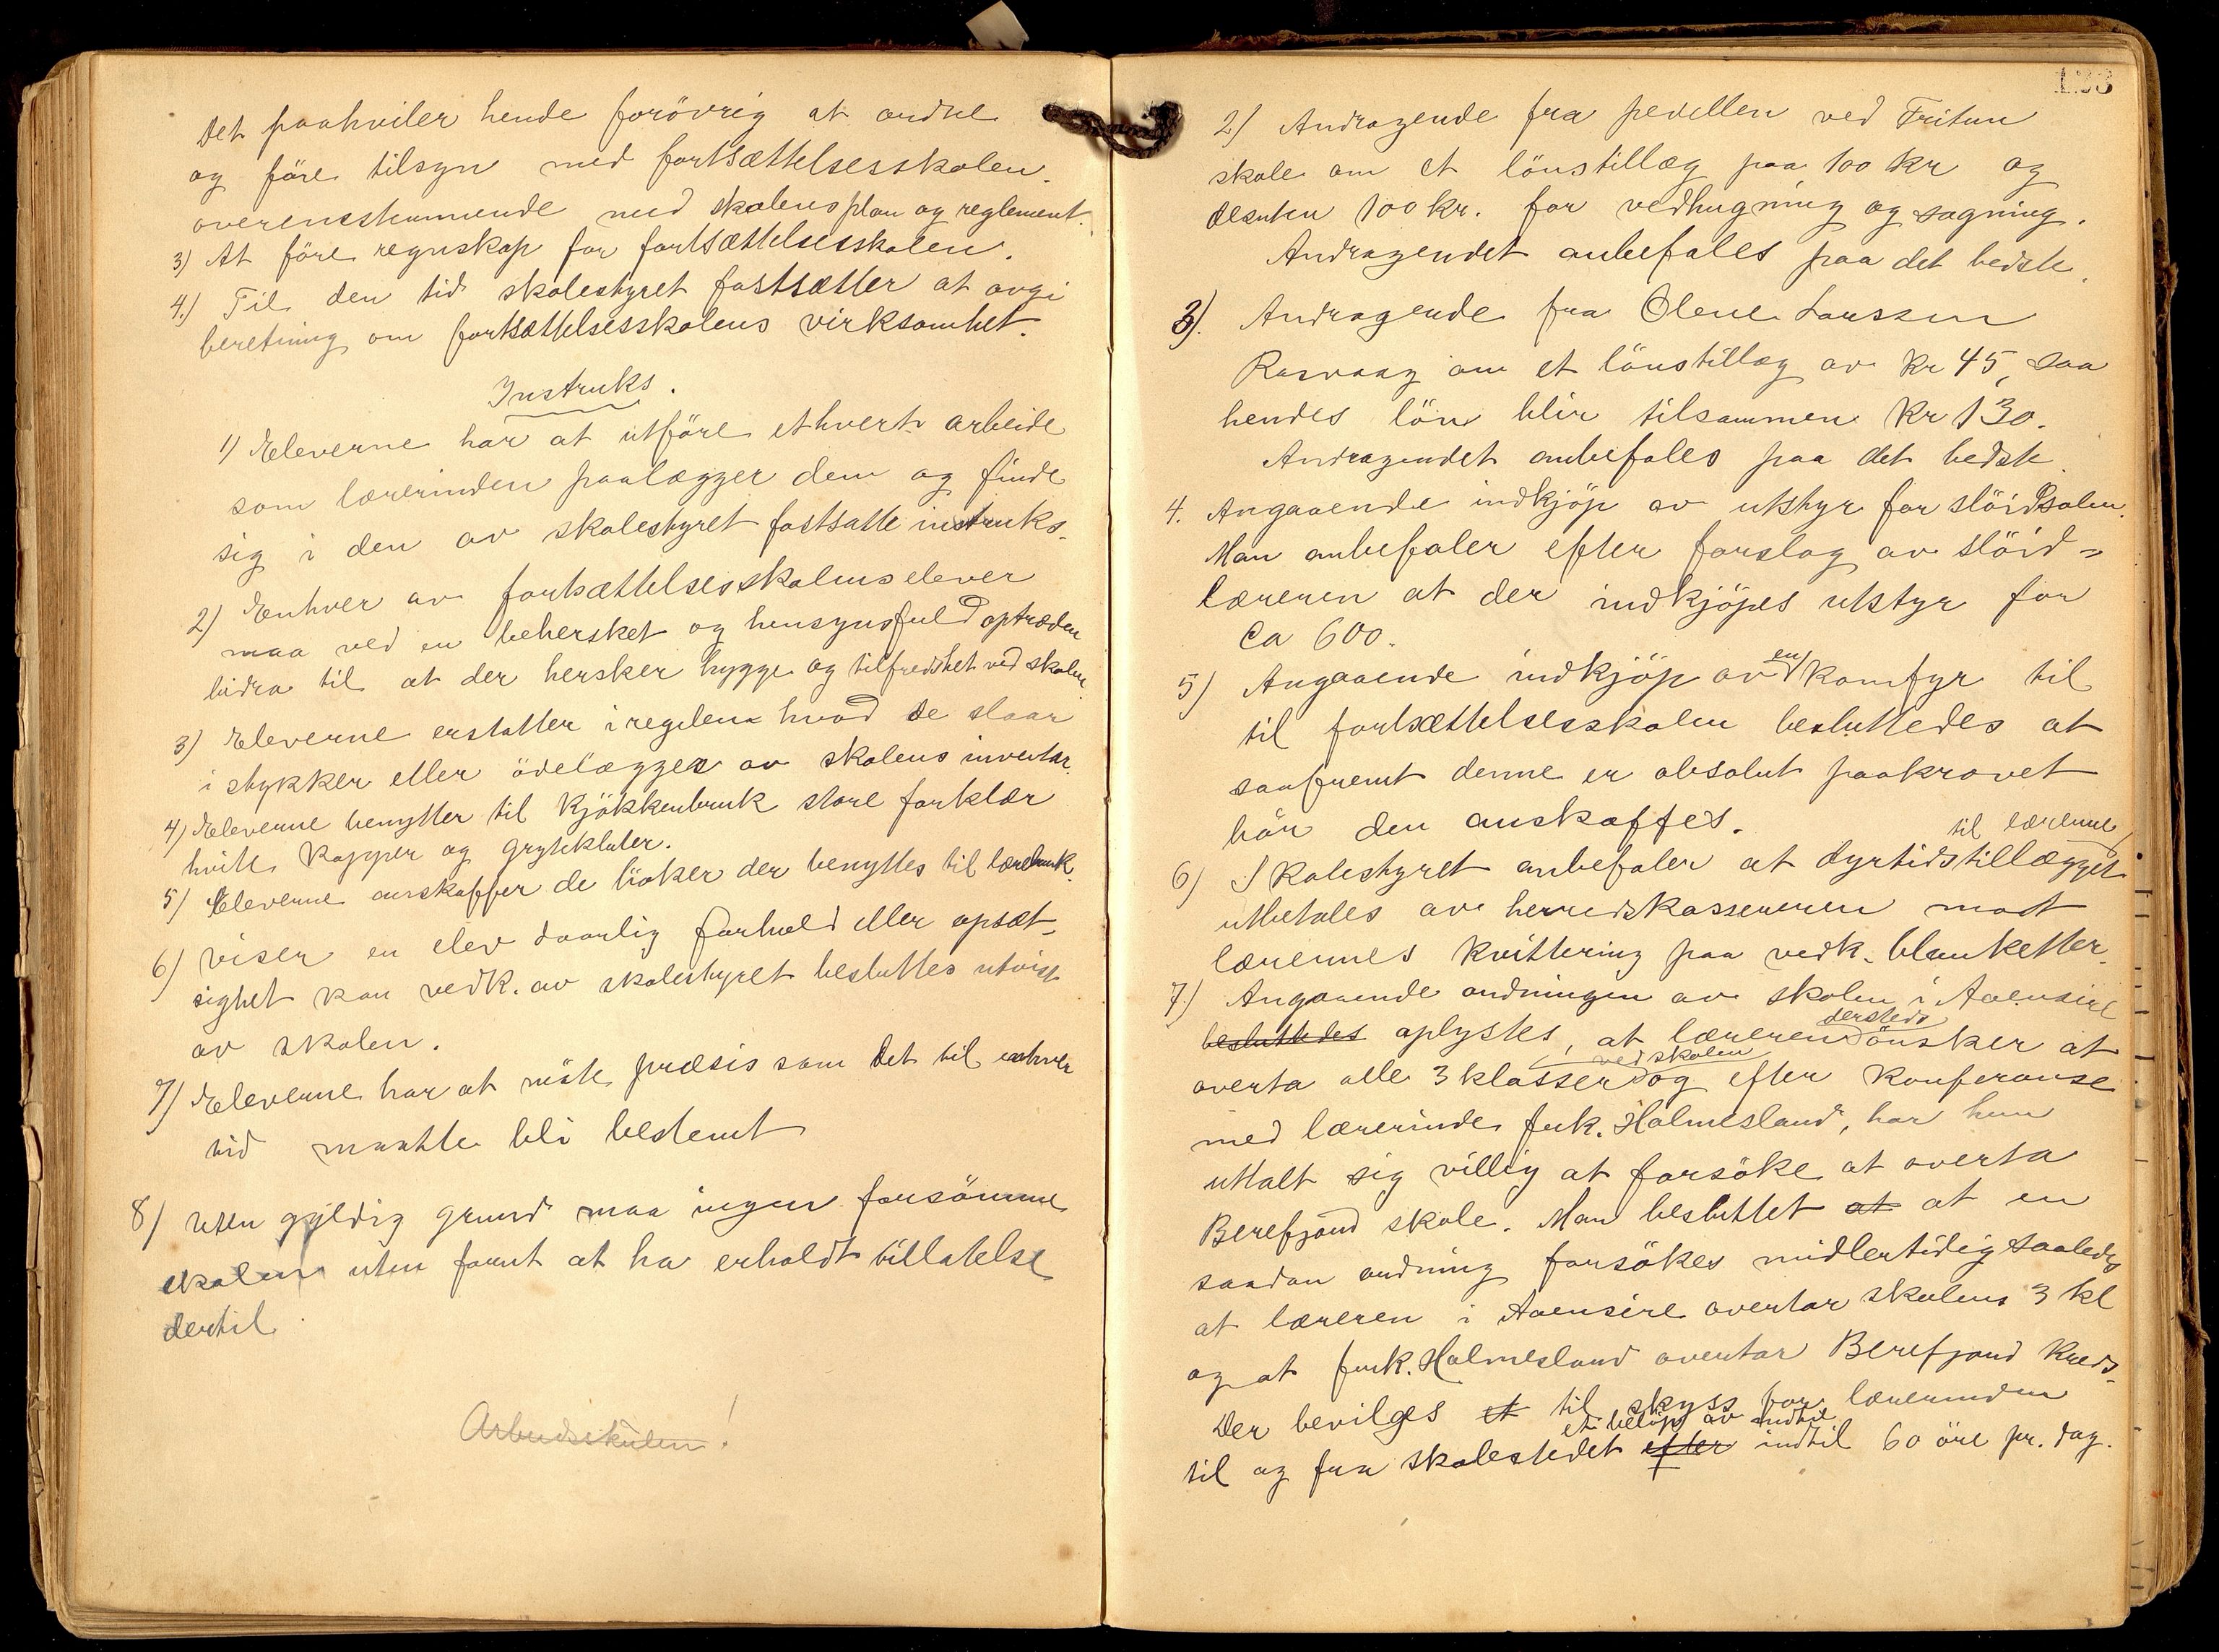 Det paahviler hende forövrig at ordne
og före tilsyn med fortsættelsesskolen
overensstemmende med skolens plan og reglement.
3) At före regnskap for fortsættelsesskolen.
4.) Til den tid skolestyret fastsætter at avgi
beretning om fortsættelsesskolens virksomhet.
Instruks.
1) Eleverne har at utföre ethvert arbeide
som lærerinden paalægger dem og finde
sig i den av skolestyret fastsatte instruks.
2) Enhver av fortsættelsesskolens elever
maa ved en behersket og hensynsfuld optræden
bidra til at der hersker hygge og tilfredshet ved skolen.
3) Eleverne erstatter i regelen hvad de slaar
i stykker eller ödelægger av skolens inventar.
4) Eleverne benytter til Kjökkenbruk store forklær
hvite Kapper og grytekluter.
5) Eleverne anskaffer de böker der benyttes til lærebruk.
6) Viser en elev daarlig forhold eller opsæt-
sighet kan vedk. av skolestyret besluttes utvist
av skolen.
7) Eleverne har at möte præsis som det til enhver
tid maatte bli bestemt
8) Uten gyldig grund maa ingen forsömme
skolen uten forut at ha erholdt tillatelse
dertil.
Arbeidsskolen!
133
2) Andragende fra pedellen ved Fritun
skole om et lönstillæg paa 100 kr og
desuten 100 kr. for vedhugning og sagning.
Andragendet anbefales paa det bedste.
3). Andragende fra Olene Larssen
Rasvaag om et lönstillæg av kr 45, saa
hendes lön blir tilsammen kr 130.
Andragendet anbefales paa det bedste.
4. Angaaende indkjöp av utstyr for slöidsalen.
Man anbefaler efter forslag av slöid=
læreren at der indkjöpes utstyr for
Ca 600.
5) Angaaende indkjöp av en Komfyr til
til fortsættelsesskolen besluttedes at
saafremt denne er absolut paakrævet
bör den anskaffes.
til lærerne
6) Skolestyret anbefaler at dyrtidstillægget
utbetales av herredskassereren mot
lærernes kvittering paa vedk. blanketter.
7.) Angaaende ordningen av skolen i Aaensire
dersteds
besluttedes oplystes, at læreren önsker at
ved skolen
overta alle 3 klasser og efter konferanse
med lærerinde frk. Holmesland, har hun
uttalt sig villig at forsöke at overta
Berefjord skole. Man besluttet at at en
saadan ordning forsökes midlertidig saaledes
at læreren i Aaensire overtar skolens 3 kl
og at frk. Holmesland overtar Berefjord Kreds.
Der bevilges et til skyss for lærerinden
et belöp av indtil
til og fra skolestedet efter indtil 60 öre pr. dag.